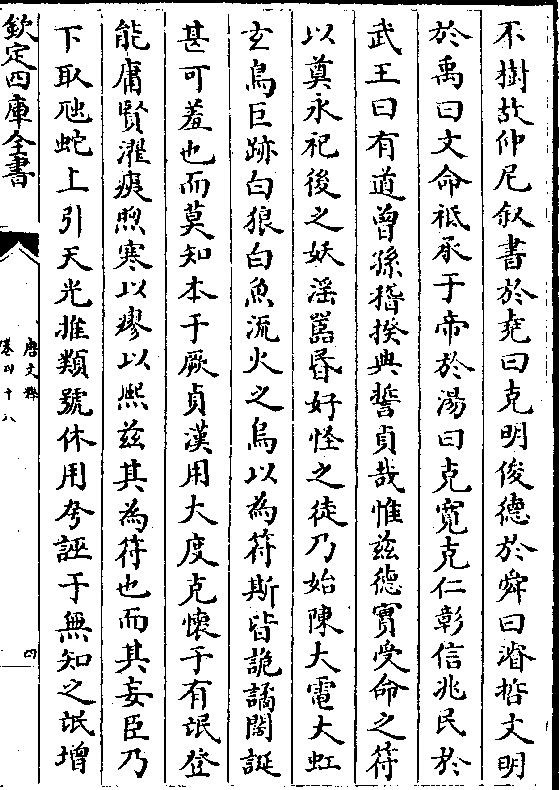 不樹故仲尼叙書於堯曰克明俊德於舜曰濬哲文明
於禹曰文命祗承于帝於湯曰克寛克仁彰信兆民於
武王曰有道曾孫稽揆典誓貞哉惟兹德實受命之符
以奠永祀後之妖淫嚚昏好怪之徒乃始陳大電大虹
玄鳥巨跡白狼白魚流火之烏以為符斯皆詭譎闊誕
甚可羞也而莫知本于厥貞漢用大度克懷于有氓登
能庸賢濯痍煦寒以瘳以熙兹其為符也而其妄臣乃
下取虺蛇上引天光推類號休用夸誣于無知之氓增
欽定四庫全書
唐文粹
卷四十八
四